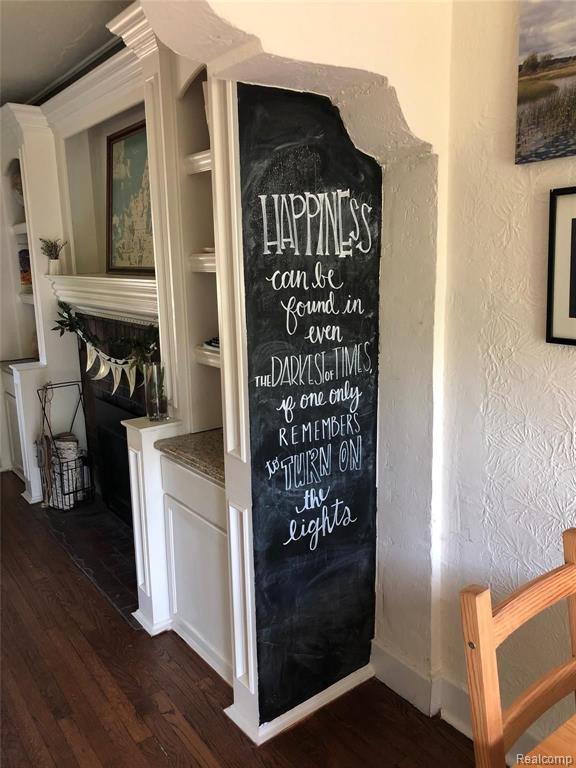 HAPPINESS
can be
found in
even
THE DARKEST OF TIMES,
if one only
REMEMBERS
to TURN ON
the
lights
Realcomp